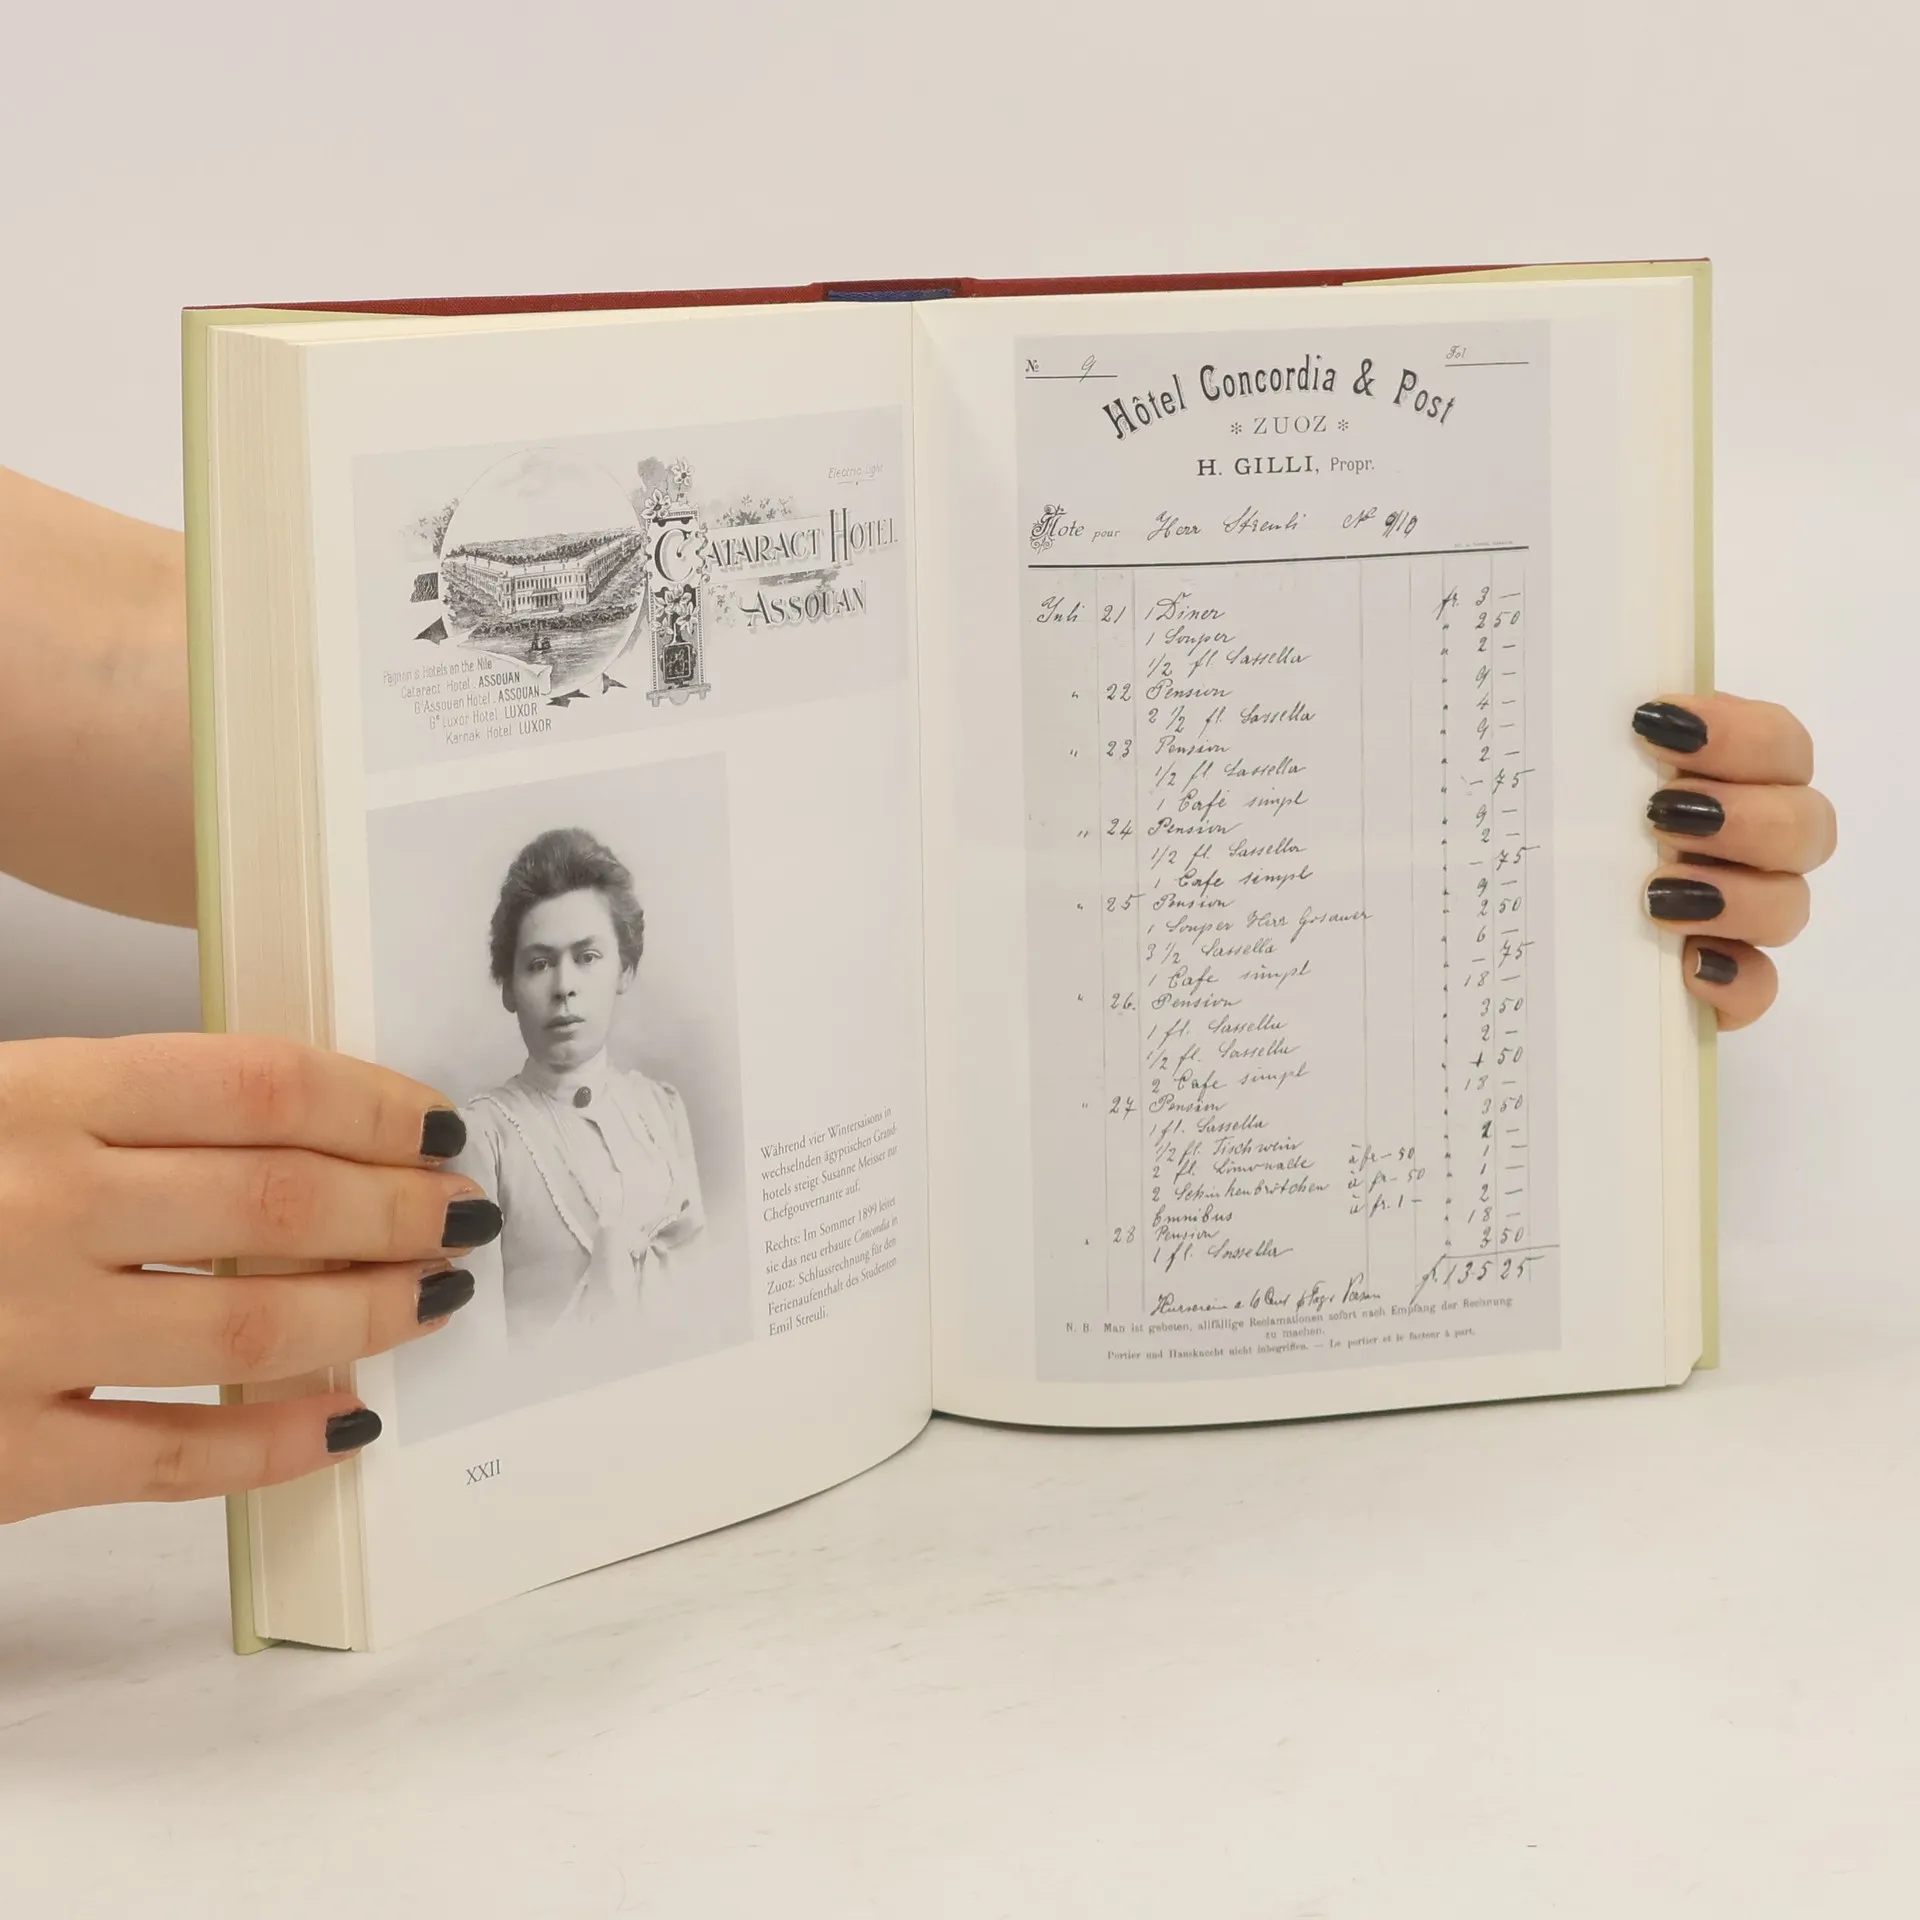 Electric Light
CATARACT HOTEL
ASSOUAN
Pagnon's Hotels on the Nile
Cataract Hotel . ASSOUAN
Gd Assouan Hotel . ASSOUAN
Gd Luxor Hotel LUXOR
Karnak Hotel LUXOR
Während vier Wintersaisons in
wechselnden ägyptischen Grand-
hotels steigt Susanne Meisser zur
Chefgouvernante auf.
Rechts: Im Sommer 1899 leitet
sie das neu erbaute Concordia in
Zuoz: Schlussrechnung für den
Ferienaufenthalt des Studenten
Emil Streuli.
XXII
No 9
Fol
Hôtel Concordia & Post
* ZUOZ *
H. GILLI, Propr.
Note pour Herr Streuli No 9/10
Juli 21 1 Diner fr. 3 —
1 Souper " 2 50
1/2 fl. Sassella " 2 —
" 22 Pension " 9 —
2 1/2 fl. Sassella " 4 —
" 23 Pension " 9 —
1/2 fl Sassella " 2 —
1 Café simpl " — 75
" 24 Pension " 9 —
1/2 fl. Sassella " 2 —
1 Cafe simpl " — 75
" 25 Pension " 9 —
1 Souper Herr " 2 50
3 1/2 Sassella " 6 —
1 Cafe simpl " — 75
" 26. Pension " 18 —
1 fl. Sassella " 3 50
1/2 fl. Sassella " 2 —
2 Cafe simpl " 1 50
" 27 Pension " 18 —
1 fl. Sassella " 3 50
1/2 fl. Tischwein " 1 —
2 fl. Limonade à fr – 50 " 1 —
2 Schinkenbrötchen à fr – 50 " 1 —
Omnibus à fr. 1 – " 2 —
" 28 Pension " 18 —
1 fl. Sassella " 3 50
fr. 135 25
N. B. Man ist gebeten, allfällige Reclamationen sofort nach Empfang der Rechnung
zu machen.
Portier und Hausknecht nicht inbegriffen. — Le portier et le facteur à part.